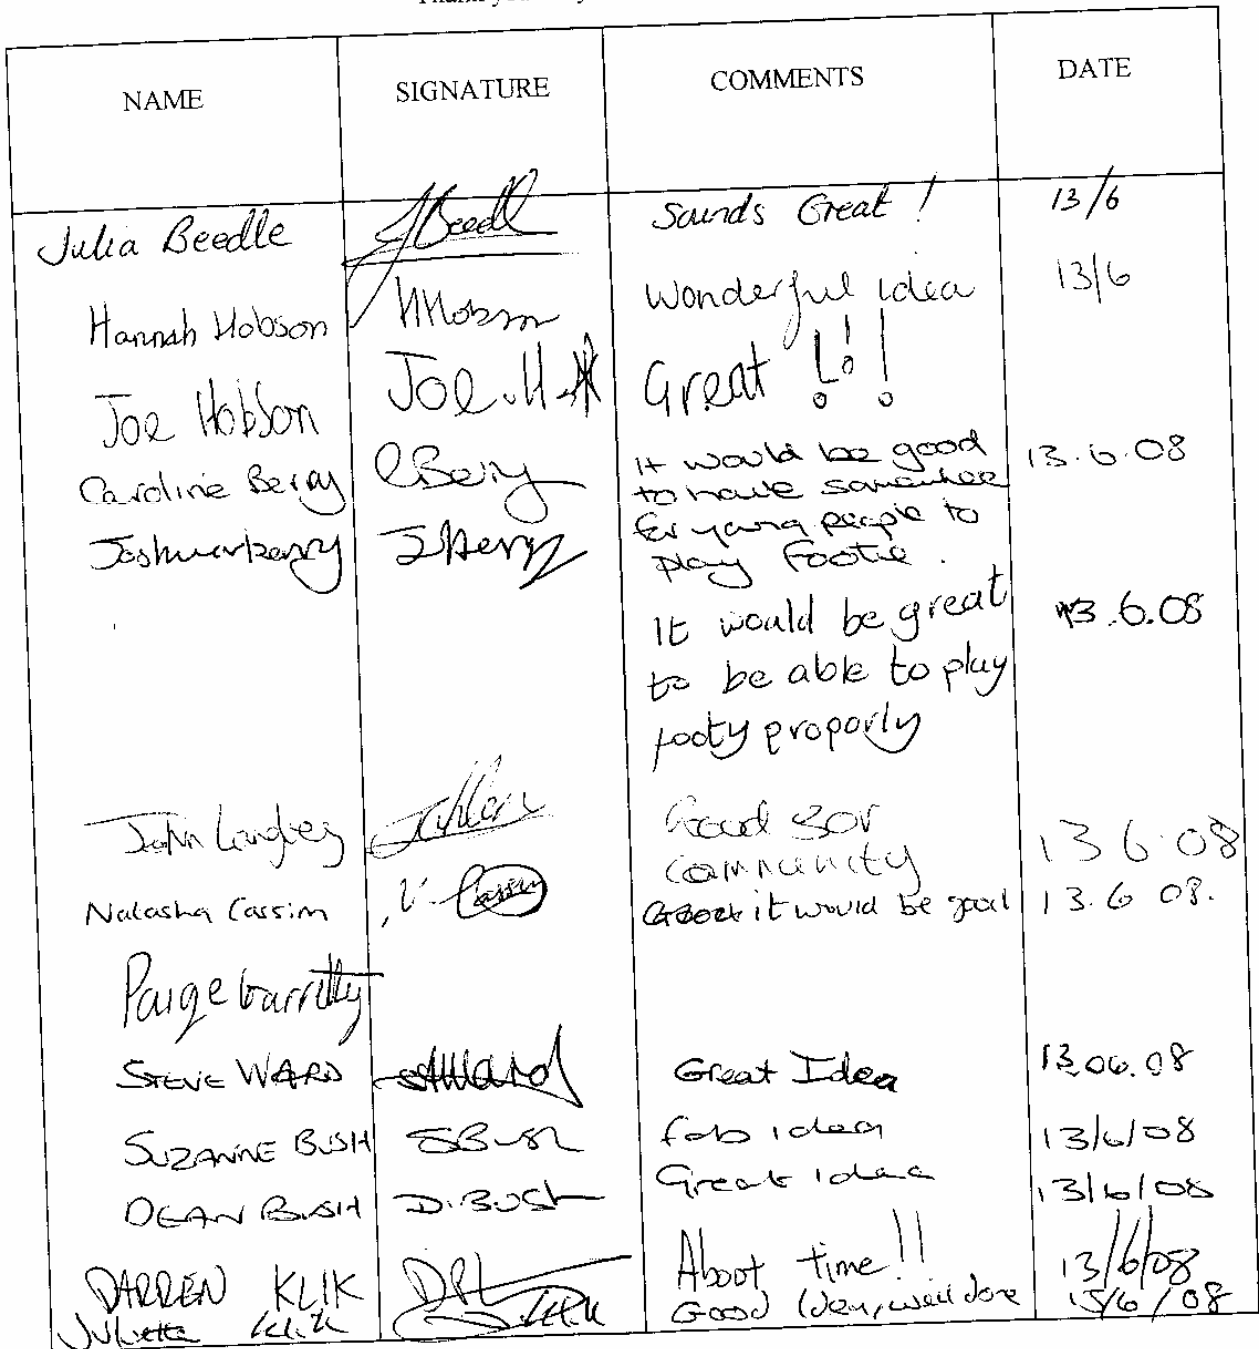 Thank you
NAME SIGNATURE COMMENTS DATE
Julia Beedle JBeedl Sounds Great! 13/6
Hannah Hobson HHobson Wonderful idea 13/6
Joe Hobson Joe.H Great !!!
Caroline Berry CBerry It would be good 13.6.08
to have somewhere
for young people to
play footie.
Joshua berry JBerry
It would be great 13.6.08
to be able to play
footy properly
John Langley Good for 13 6.08
community
Natasha Cassim N. Cassim it would be good 13.6 08.
Paige Garritty
STEVE WARD SWard Great Idea 13.06.08
SUZANNE BUSH SBush fab idea 13/6/08
DEAN BUSH D.BUSH Great idea 13/6/08
DARREN KLIK About time!! 13/6/08
Juliette Klik Good idea, well done 13/6/08